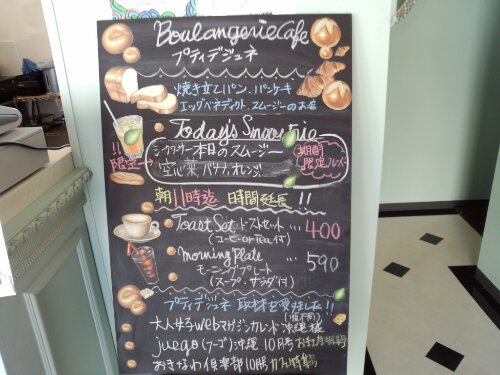 Boulangerie Cafe
プティデジュネ
焼き立てパン、パンケーキ
エッグベネディクト、スムージーのお店
Today's Smoothie
!!限定 シークワーサー本日のスムージー 期間限定フレーバー
空心菜、バナナ、オレンジ
朝11時迄 時間延長!!
Toast Set トーストセット ... 400
(コーヒーor Tea付)
Morning Plate ... 590
モーニングプレート
(スープ・サラダ付)
プティデジュネ 取材を受けました!!
大人女子webマガジンカレンド沖縄様
(順不同)
juego (フーゴ)沖縄 10月号
おきなわ倶楽部10月 カフェ特集